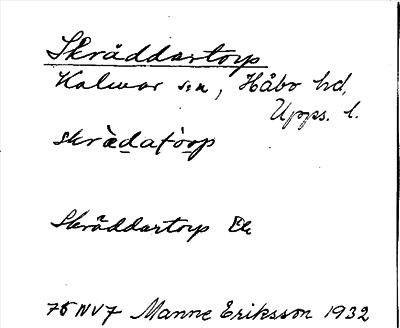 Skräddartorp
Kalmar sn, Håbo hd,
Upps. l.
skrädatorp
Skräddartorp Ek
75 NV7 Manne Eriksson 1932